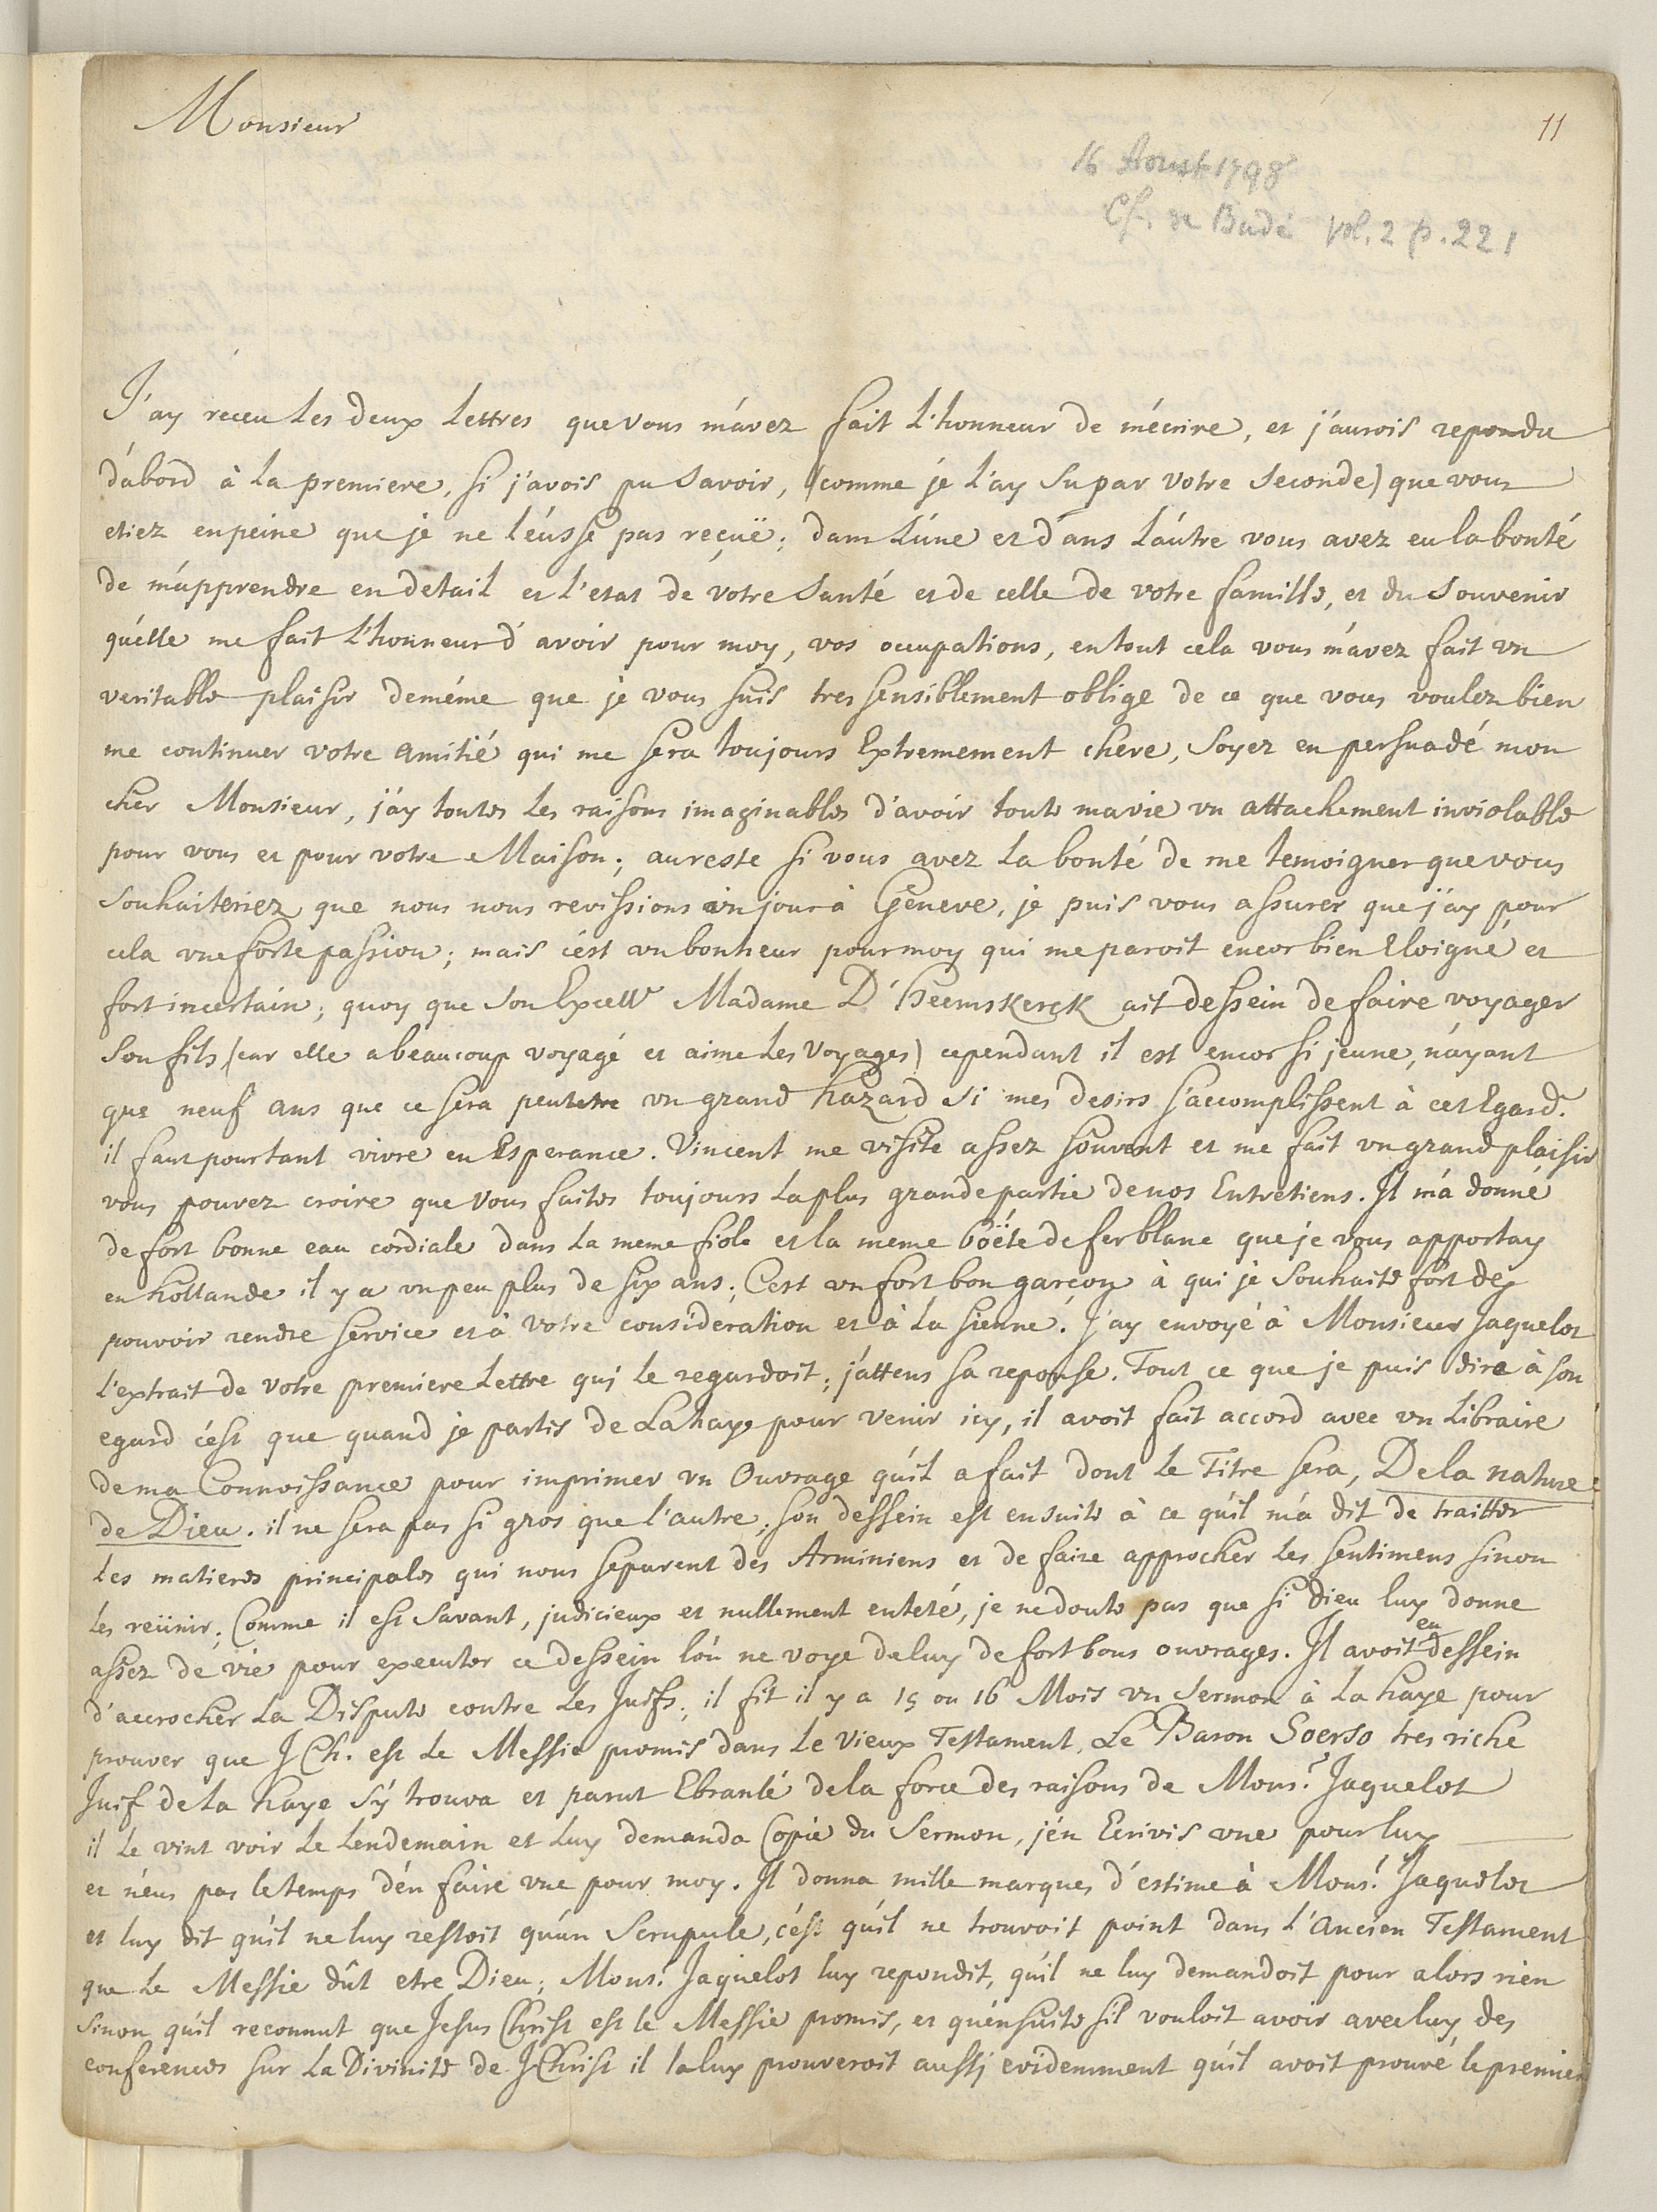 Monsieur
11
16 Aoust 1798
Cf. de Budé vol. 2 p. 221
J'ay receu les deux lettres que vous m'avez fait l'honneur de m'écrire, et j'aurois repondu
d'abord à la premiere, si j'avois pu savoir, (comme je l'ay su par votre seconde) que vous
etiez en peine que je ne l'eusse pas reçuë; dans l'une et dans l'autre vous avez eu la bonté
de m'apprendre en detail et l'etat de votre santé et de celle de votre famille, et du souvenir
qu'elle me fait l'honneur d'avoir pour moy, vos occupations, en tout cela vous m'avez fait un
veritable plaisir de méme que je vous suis tres sensiblement obligé de ce que vous voulez bien
me continuer votre amitié qui me sera toujours Extremement chere, soyez en persuadé mon
cher Monsieur, j'ay toutes les raisons imaginables d'avoir toute ma vie vn attachement inviolable
pour vous et pour votre Maison; au reste si vous avez la bonté de me temoigner que vous
souhaiteriez que nous nous revissions vn jour à Géneve, je puis vous assurer que j'ay pour
cela vne forte passion; mais c'est vn bonheur pour moy qui me paroit encor bien Eloigné et
fort incertain; quoy que son Excell Madame D'Heemskerck ait dessein de faire voyager
son fils, (car elle a beaucoup voyagé et aime les voyages) cependant il est encor si jeune, n'ayant
que neuf ans que ce sera peutetre vn grand hazard si mes desirs s'accomplissent à cet Egard.
il faut pourtant vivre en Esperance. Vincent me visite assez souvent et me fait vn grand plaisir
vous pouvez croire que vous faites toujours la plus grande partie de nos Entretiens. Il m'a donné
de fort bonne eau cordiale dans la meme fiole et la meme boëte de fer blanc que je vous apportay
en hollande il y a vn peu plus de six ans; C'est vn fort bon garçon à qui je souhaite fort de
pouvoir rendre service et à votre consideration et à la sienne. J'ay envoyé à Monsieur Jaquelot
l'extrait de votre premiere lettre qui le regardoit; j'attens sa reponse. Tout ce que je puis dire à son
egard c'est que quand je partis de La haye pour venir icy, il avoit fait accord avec vn Libraire
de ma Connoissance pour imprimer vn Ouvrage qu'il a fait dont le Titre sera, De la nature
de Dieu. il ne sera pas si gros que l'autre; son dessein est ensuite à ce qu'il m'a dit de traitter
les matieres principales qui nous separent des Arminiens et de faire approcher les sentimens sinon
les reünir; Comme il est savant, judicieux et nullement enteté, je ne doute pas que si Dieu luy donne
assez de vie pour executer ce dessein l'on ne voye de luy de fort bons ouvrages. Il avoit eu dessein
d'accrocher la Dispute contre les Juifs; il fit il y a 15 ou 16 Mois vn Sermon à la haye pour
prouver que J Ch. est le Messie promis dans le vieux Testament, Le Baron Soerso tres riche
Juif de la haye s'y trouva et parut Ebranlé de la force des raisons de Mons.r Jaquelot
il le vint voir le lendemain et luy demanda Copie du Sermon, j'en Ecrivis vne pour luy
et n'eus pas le temps d'en faire vne pour moy. Il donna mille marques d'estime à Mons.r Jaquelot
et luy dit qu'il ne luy restoit qu'un Scrupule, c'est qu'il ne trouvoit point dans l'Ancien Testament
que le Messie dût etre Dieu; Mons.r Jaquelot luy repondit, qu'il ne luy demandoit pour alors rien
sinon qu'il reconnut que Jesus Christ est le Messie promis, et qu'ensuite s'il vouloit avoir avec luy des
conferences sur la Divinité de J Christ il la luy prouveroit aussi evidemment qu'il avoit prouvé le premier